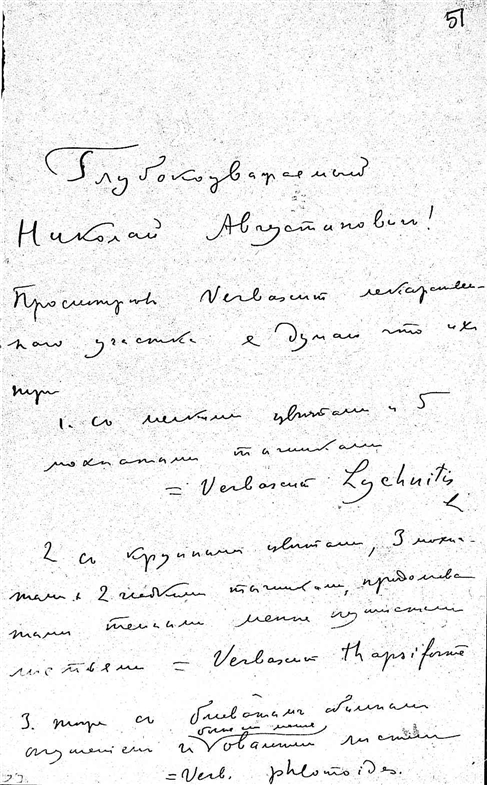 51
Глубокоуважаемый
Николай Августинович!
Просмотрев Verbascum лекарствен-
ного участка я думаю что их
три
1. со мелкими цветами и 5
мохнатыми тычинками
= Verbascum Lychnitis
L
2 со крупными цветами, 3 мохна-
тыми и 2 гладкими тычинками,
менее
листьями = Verbascum thapsiforme
3. с
более или менее
и овальными листьями
= Verb. phlomoides.